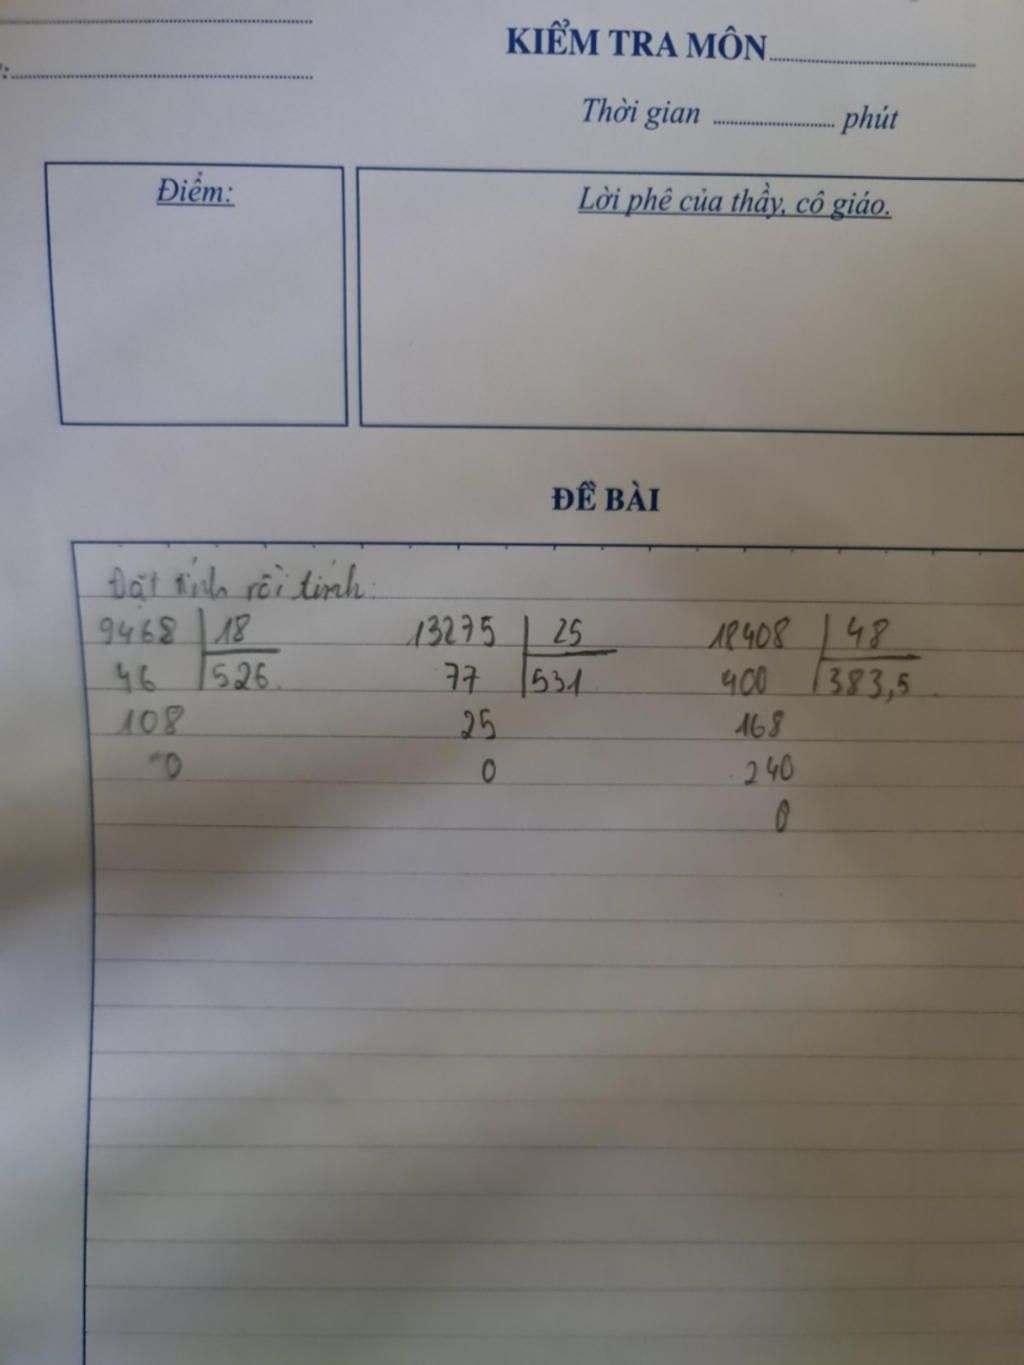 KIỂM TRA MÔN
Thời gian phút
Điểm:
Lời phê của thầy, cô giáo.
ĐỀ BÀI
Đặt tính rồi tính:
9468 18 13275 25 18408 48
46 526 77 531 400 383,5
108 25 168
0 0 240
0